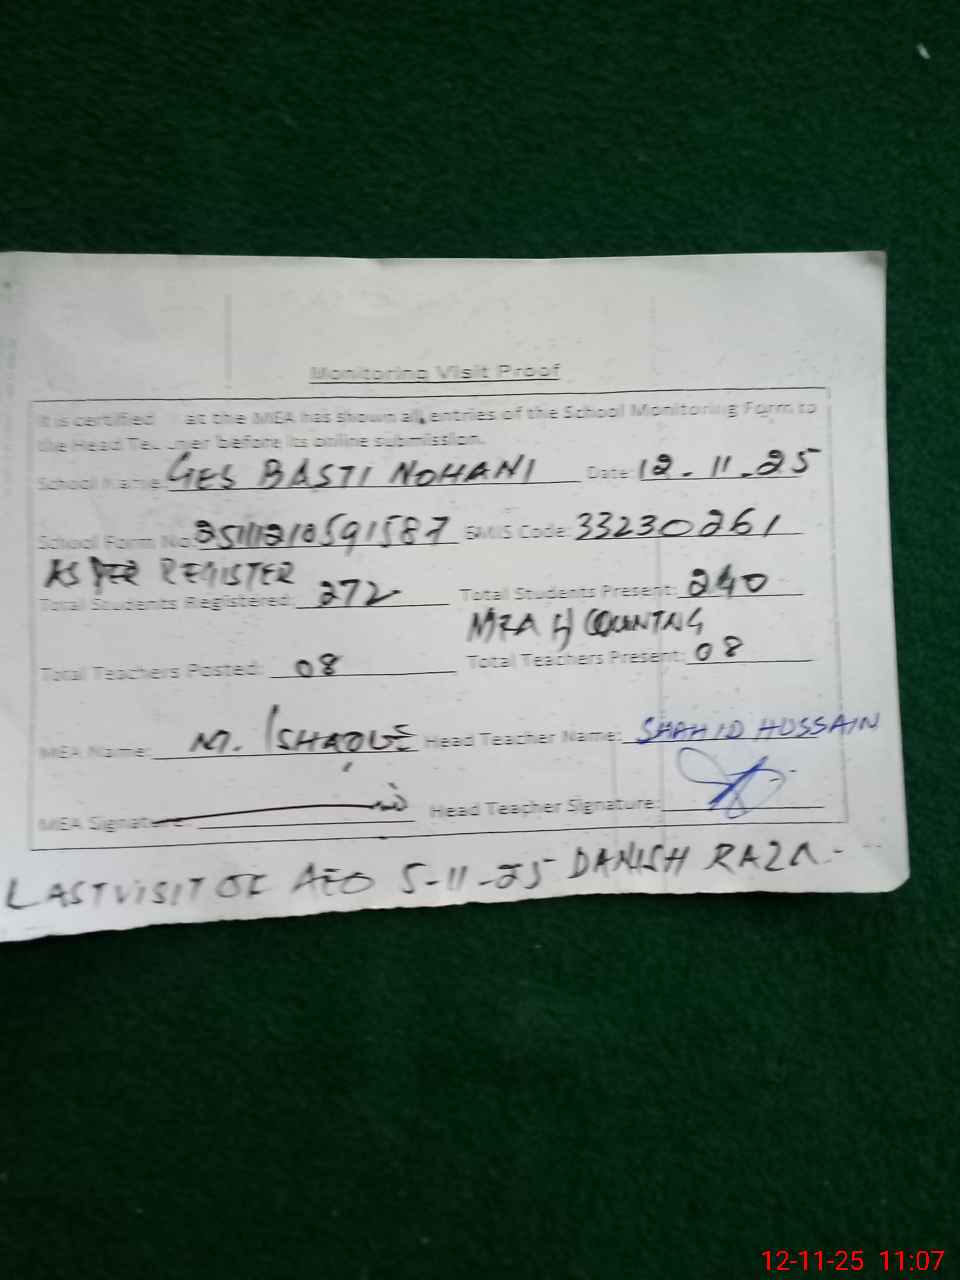 Monitoring Visit Proof
It is certified at the MEA has shown all entries of the School Monitoring Form to
the Head Teacher before its online submission.
School Name: GES BASTI NOHANI Date: 12-11-25
School Form No: EMIS Code: 33230261
AS PER REGISTER
Total Students Registered: 272 Total Students Present: 240
MEA H COUNTNG
Total Teachers Posted: 08 Total Teachers Present: 08
MEA Name: M. ISHAQUE Head Teacher Name: SHAHID HUSSAIN
MEA Signature: Head Teacher Signature:
LAST VISIT OF AEO 5-11-25 DANISH RAZA
12-11-25 11:07